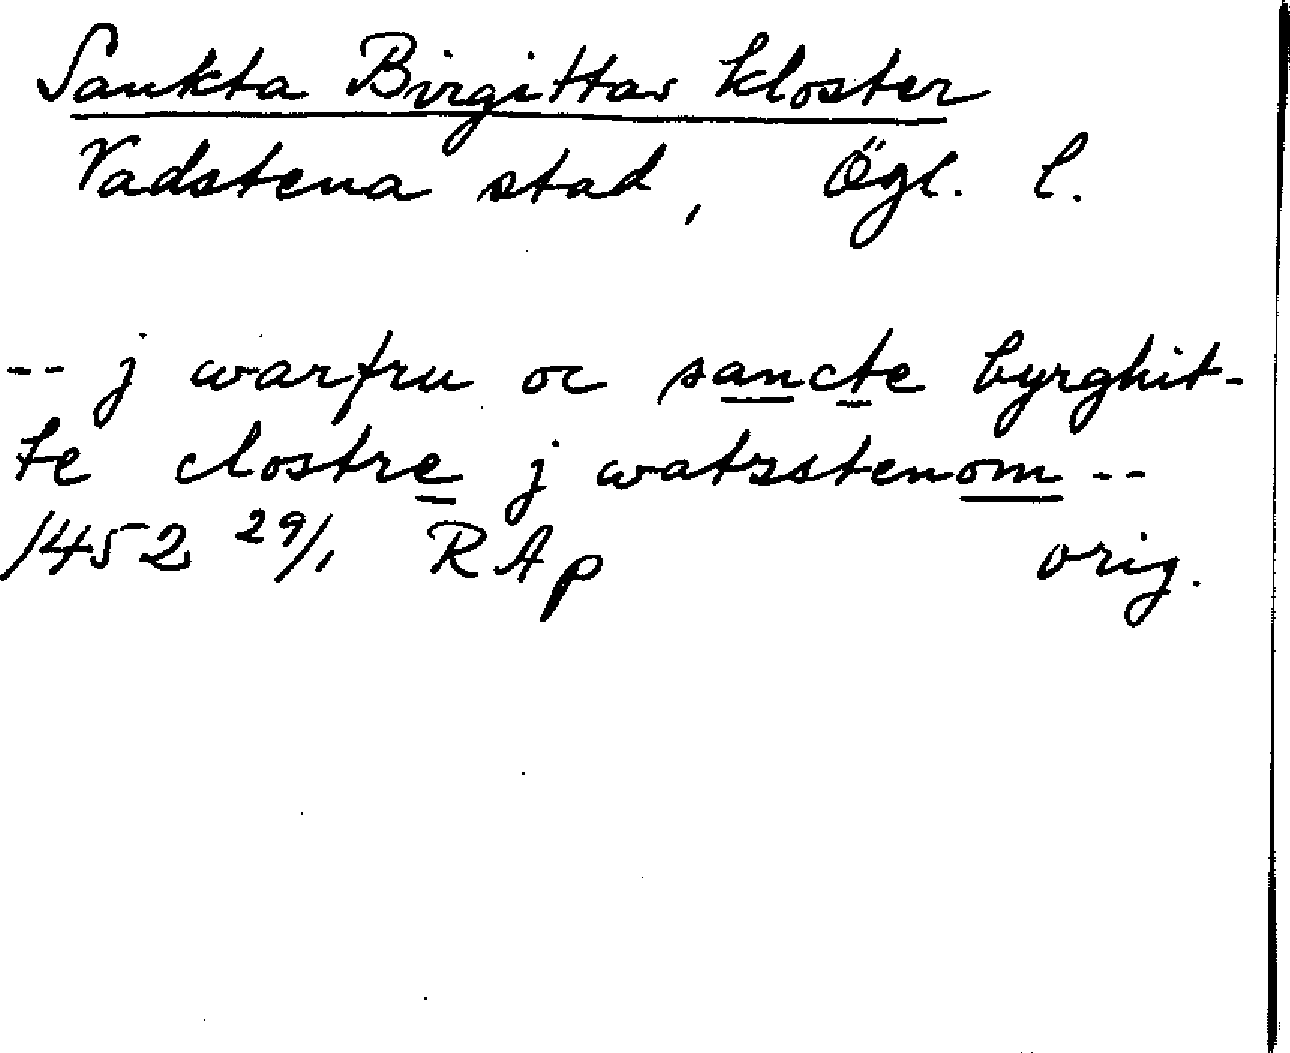 Sankta Birgittas kloster
Vadstena stad, Ögl. l.
-- j warfru oc sancte byrghit-
te clostre j watzstenom --
1452 29/1 RAp orig.